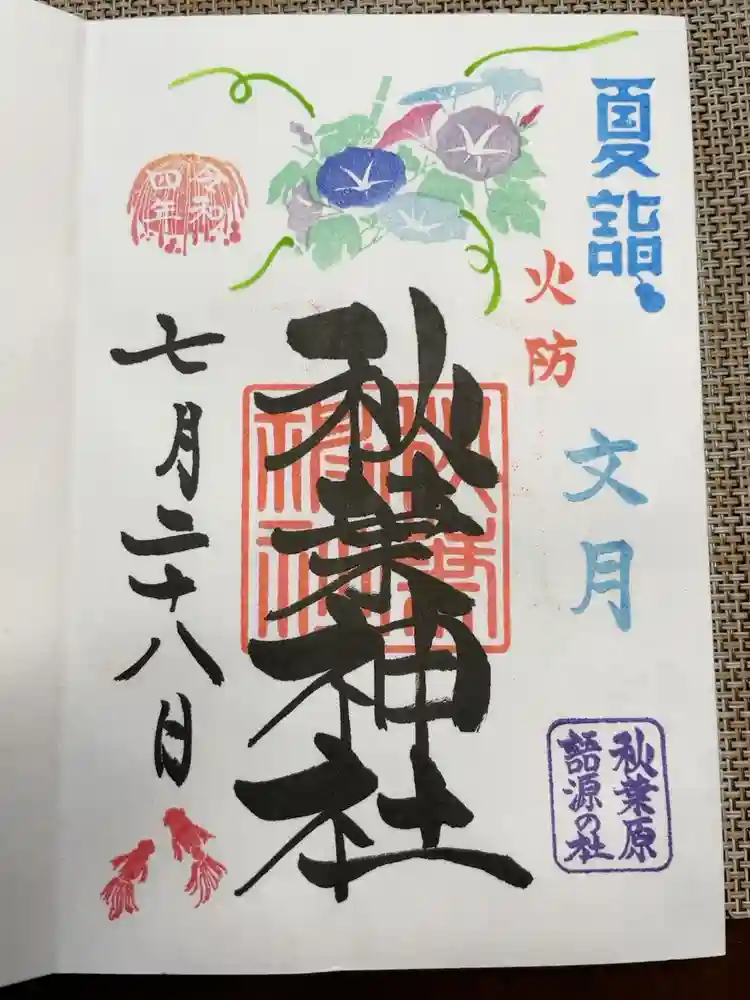 夏詣
火防
文月
秋葉原
語源の社
秋葉神社
秋葉
神社
令和
四年
七月二十八日